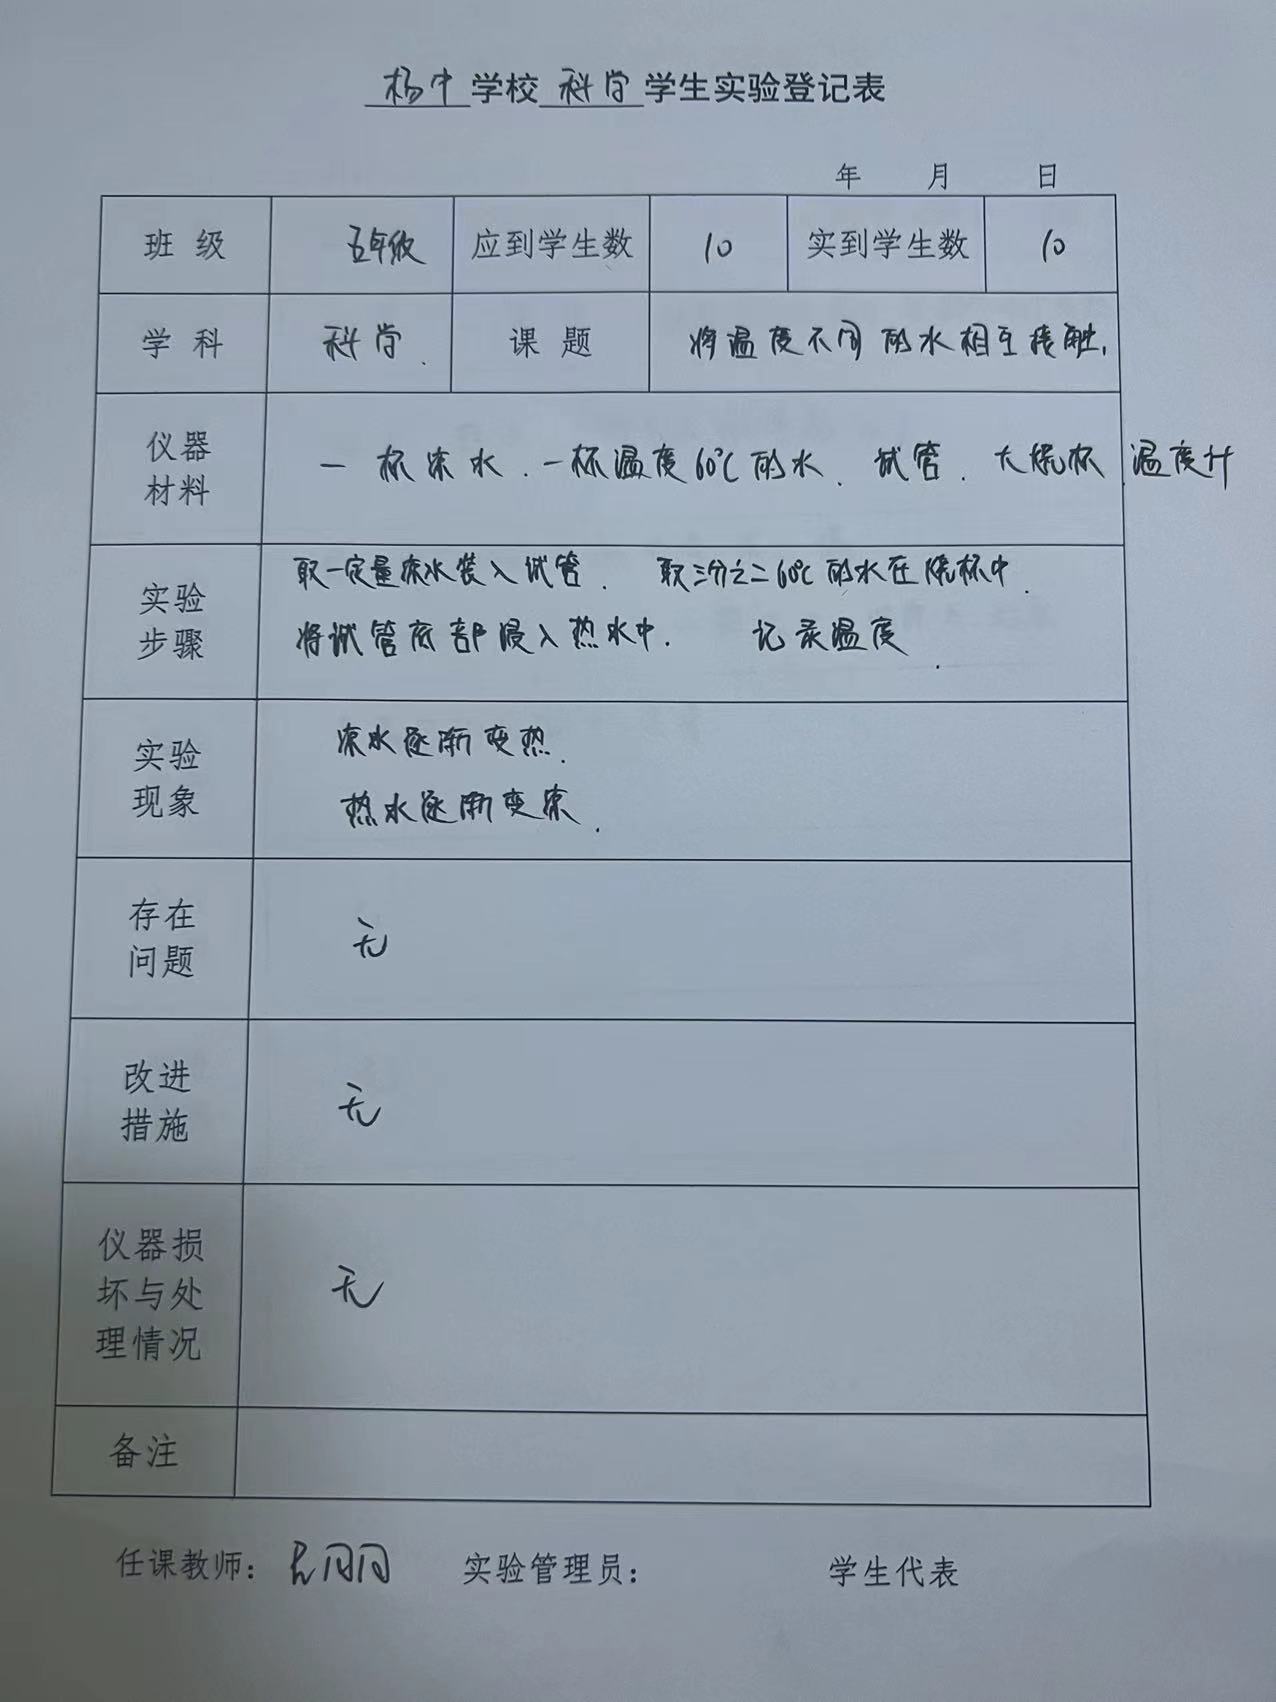 杨中学校科学学生实验登记表
年 月 日
班级 五年级 应到学生数 10 实到学生数 10
学科 科学. 课题 将温度不同的水相互接触.
仪器
材料
一杯凉水.一杯温度60℃的水、试管.大烧杯.温度计
实验
步骤
取一定量凉水装入试管. 取三分之二60℃的水在烧杯中.
将试管底部浸入热水中. 记录温度.
实验
现象
凉水逐渐变热.
热水逐渐变凉.
存在
问题
无
改进
措施
无
仪器损
坏与处
理情况
无
备注
任课教师： 实验管理员： 学生代表